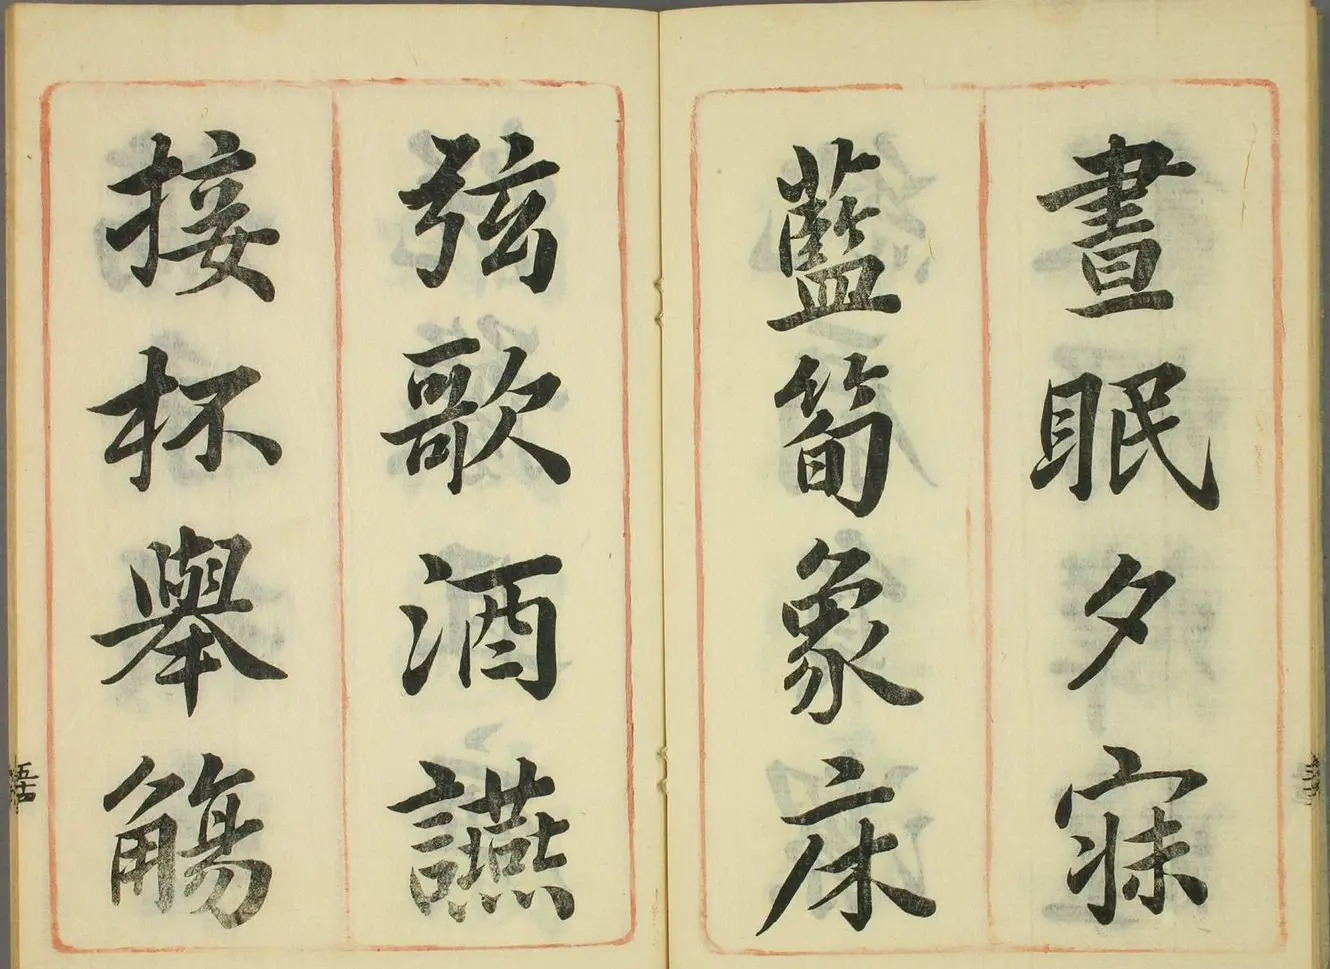 晝眠夕寐
藍筍象床
弦歌酒讌
接杯舉觴